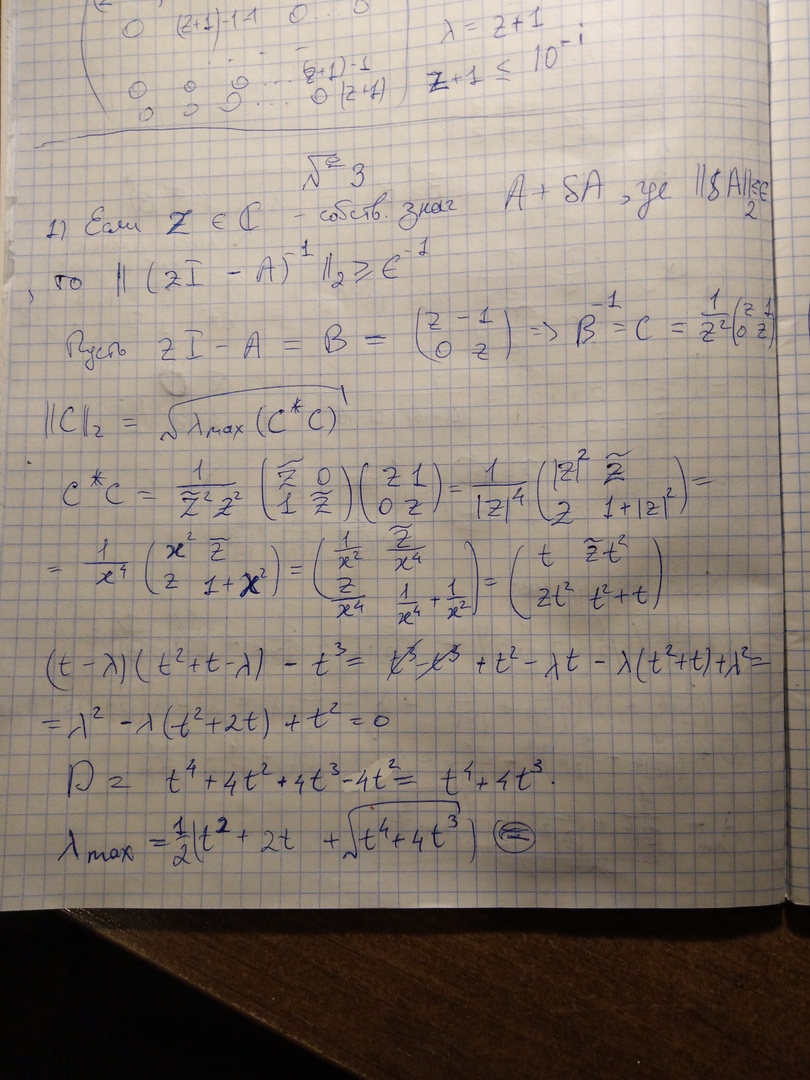 0 (z+1)-1-1 0 ... 0
λ = z+1
0 0 0 ... (z+1)-1
z+1 ≤ 10^{-i}
0 0 0 ... 0 (z+1)
№ 3
1) Если z ∈ ℂ - собств. знач A + δA, где ||δA||_2 ≤ ϵ
, то || (zI - A)^{-1} ||_2 ≥ ϵ^{-1}
Пусть zI - A = B = (z -1; 0 z) => B^{-1} = C = 1/z² (z 1; 0 z)
||C||_2 = √λ_max (C*C)
C*C = 1/(z̃² z²) (z̃ 0; 1 z̃) (z 1; 0 z) = 1/|z|⁴ (|z|² z̃; z 1+|z|²) =
= 1/x⁴ (x² z̃; z 1+x²) = (1/x² z̃/x⁴; z/x⁴ 1/x⁴ + 1/x²) = (t z̃t²; zt² t²+t)
(t-λ)(t²+t-λ) - t³ = t³ - t³ + t² - λt - λ(t²+t) + λ² =
= λ² - λ(t²+2t) + t² = 0
D = t⁴ + 4t² + 4t³ - 4t² = t⁴ + 4t³.
λ_max = 1/2 (t² + 2t + √t⁴+4t³) (=)